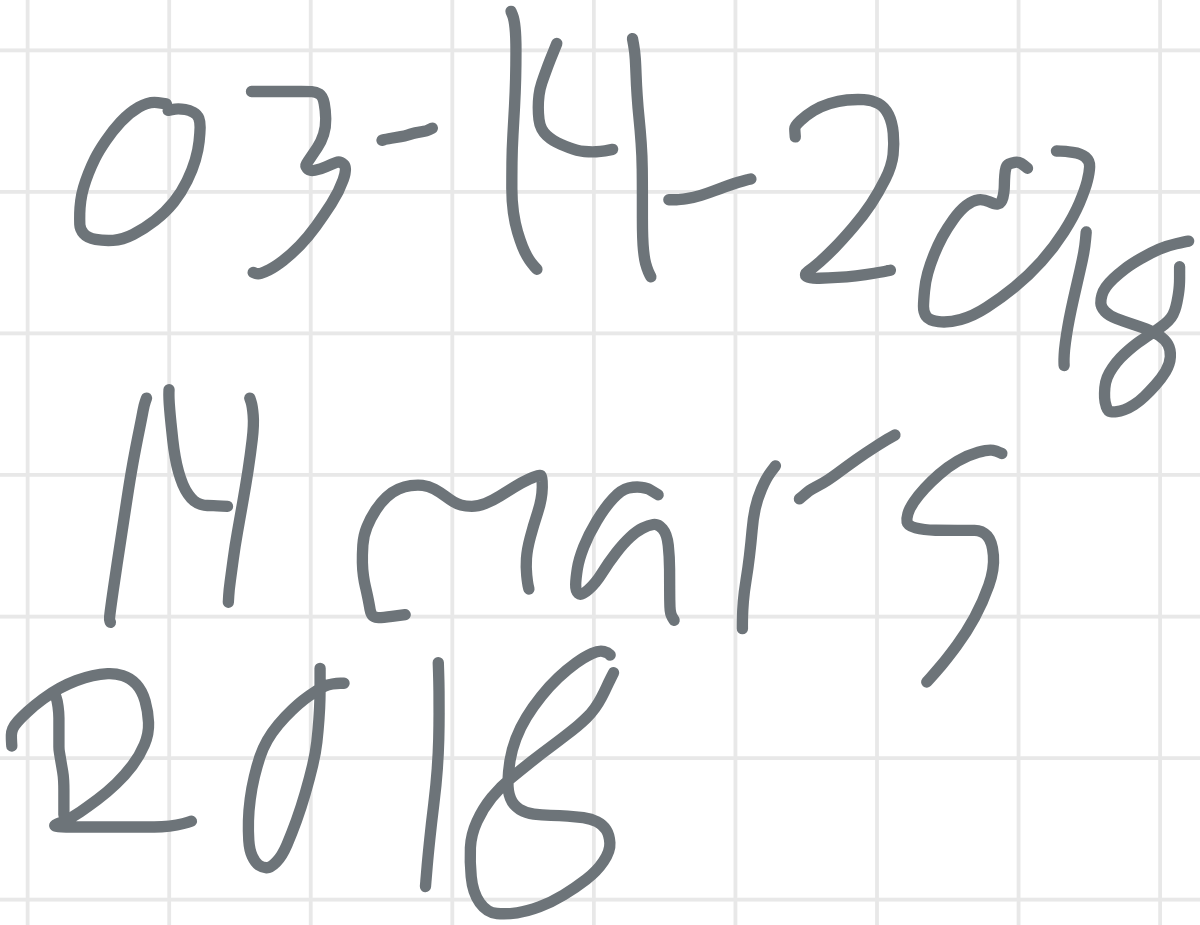 03-14-2018
14 mars
2018